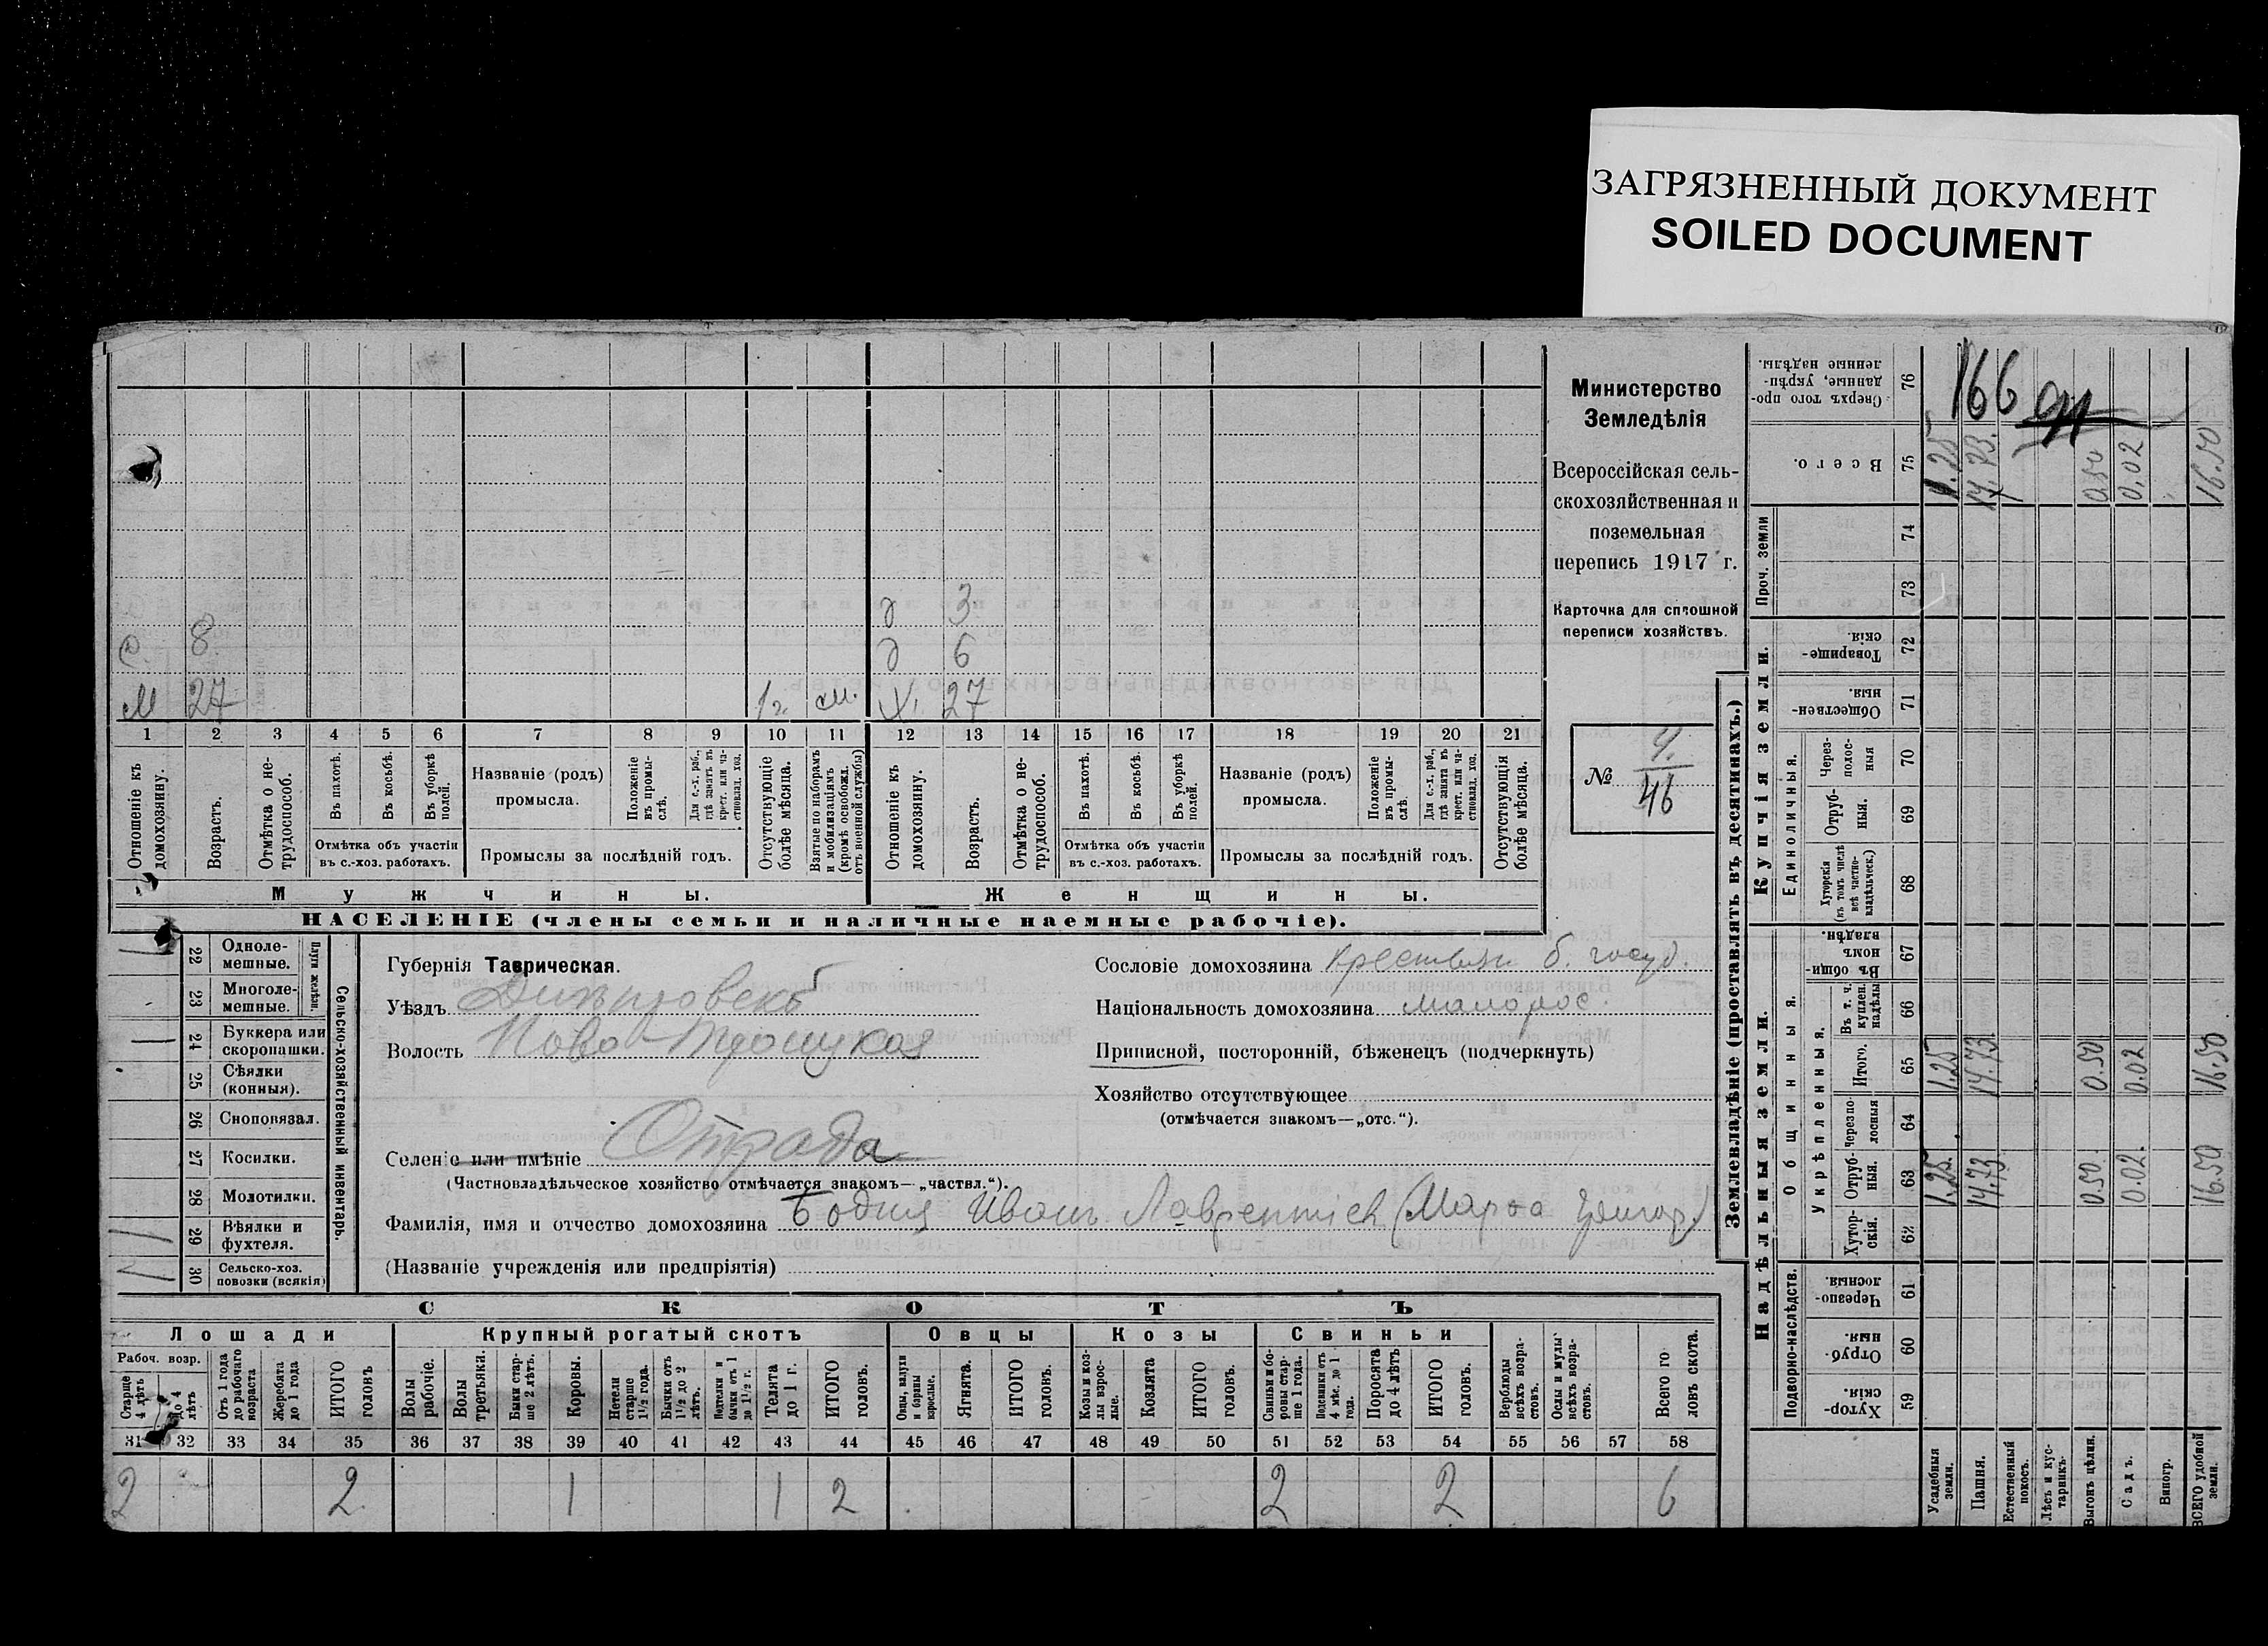 ЗАГРЯЗНЕННЫЙ ДОКУМЕНТ
SOILED DOCUMENT
Министерство
Земледѣлія
Всероссійская сель-
скохозяйственная и
поземельная
перепись 1917 г.
Карточка для сплошной
переписи хозяйствъ.
№ 4/46
166
д 3
с. 8 д 6
м 27 1 г. ж. 27
1 2 3 4 5 6 7 8 9 10 11 12 13 14 15 16 17 18 19 20 21
Отношеніе къ домохозяину.
Возрастъ.
Отмѣтка о не-трудоспособ.
Въ пахотѣ.
Въ косьбѣ.
Въ уборкѣ полей.
Отмѣтка объ участіи
въ с.-хоз. работахъ.
Названіе (родъ)
промысла.
Положеніе въ промы-слѣ.
Для с.-х. раб., гдѣ занятъ въ крест. или ча-стновлад. хоз.
Промыслы за послѣдній годъ.
Отсутствующіе болѣе мѣсяца.
Взятые по наборамъ и мобилизаціямъ (кромѣ освобожд. отъ военной службы)
Отношеніе къ домохозяину.
Возрастъ.
Отмѣтка о не-трудоспособ.
Въ пахотѣ.
Въ косьбѣ.
Въ уборкѣ полей.
Отмѣтка объ участіи
въ с.-хоз. работахъ.
Названіе (родъ)
промысла.
Положеніе въ промы-слѣ.
Для с.-х. раб., гдѣ занята въ крест. или ча-стновлад. хоз.
Промыслы за послѣдній годъ.
Отсутствующія болѣе мѣсяца.
Мужчины.
Женщины.
НАСЕЛЕНІЕ (члены семьи и наличные наемные рабочіе).
22 Одноле-мешные.
23 Многоле-мешные.
Плуги желѣзн.
24 Буккера или скоропашки.
25 Сѣялки (конныя).
26 Сноповязал.
27 Косилки.
28 Молотилки.
29 Вѣялки и фухтеля.
30 Сельско-хоз. повозки (всякія)
Сельско-хозяйственный инвентарь.
Губернія Таврическая.
Уѣздъ Днѣпровскъ
Волость Ново-Троицкая
Селеніе или имѣніе Отрада
(Частновладѣльческое хозяйство отмѣчается знакомъ—„частвл.“).
Фамилія, имя и отчество домохозяина Бодня Иванъ Лаврентіев (Марѳа Григор.)
(Названіе учрежденія или предпріятія)
Сословіе домохозяина Крестьян б. госуд.
Національность домохозяина малорос.
Приписной, посторонній, бѣженецъ (подчеркнуть)
Хозяйство отсутствующее
(отмѣчается знакомъ—„отс.“).
СКОТЪ
Лошади
Крупный рогатый скотъ
Овцы
Козы
Свиньи
Рабоч. возр.
Старше 4 лѣтъ
до 4 лѣтъ
Отъ 1 года до рабочаго возраста
Жеребята до 1 года
ИТОГО головъ
Волы рабочіе.
Волы третьяки.
Быки стар-ше 2 лѣтъ.
Коровы.
Нетели старше 1½ года.
Бычки отъ 1½ до 2 лѣтъ.
Подтелки и бычки отъ 1 до 1½ г.
Телята до 1 г.
ИТОГО головъ.
Овцы, валухи и бараны взрослые.
Ягнята.
ИТОГО головъ.
Козы и коз-лы взрос-лые.
Козлята
ИТОГО головъ.
Свиньи и бо-ровы стар-ше 1 года.
Подсвинки отъ 4 мѣс. до 1 года.
Поросята до 4 лѣтъ
ИТОГО головъ.
Верблюды всѣхъ возра-стовъ.
Ослы и мулы всѣхъ возра-стовъ.
Всего го ловъ скота.
31 32 33 34 35 36 37 38 39 40 41 42 43 44 45 46 47 48 49 50 51 52 53 54 55 56 57 58
2 2 1 1 2 2 2 6
Землевладѣніе (проставлять въ десятинахъ.)
Купчія земли.
Надѣльныя земли.
Сверхъ того про-данные, укрѣп-ленные надѣлы. 76
Всего. 75
Проч. земли 74 73
Товарище-скія. 72
Обществен-ныя. 71
Единоличныя.
Через-полос-ныя 70
Отруб-ныя. 69
Хуторскія (въ томъ числѣ всѣ частно-владѣльческ.) 68
Общинныя.
Въ общин-номъ владѣн. 67
Укрѣпленныя.
Въ т. ч. куплен. надѣлы 66
Итого. 65
Черезпо-лосныя 64
Отруб-ныя. 63
Хутор-скія. 62
Подворно-наслѣдств.
Черезпо-лосныя. 61
Отруб-ныя. 60
Хутор-скія 59
Усадебныя земли.
Пашня.
Естественный покосъ.
Лѣсъ и кус-тарникъ.
Выгонъ цѣлин.
Садъ.
Виногр.
ВСЕГО удобной земли.
1.25 14.73. 0.50 0,02 16.50
1.25 14.73 0.50 0.02 16.50
1.25. 14.73 0.50. 0.02. 16.50